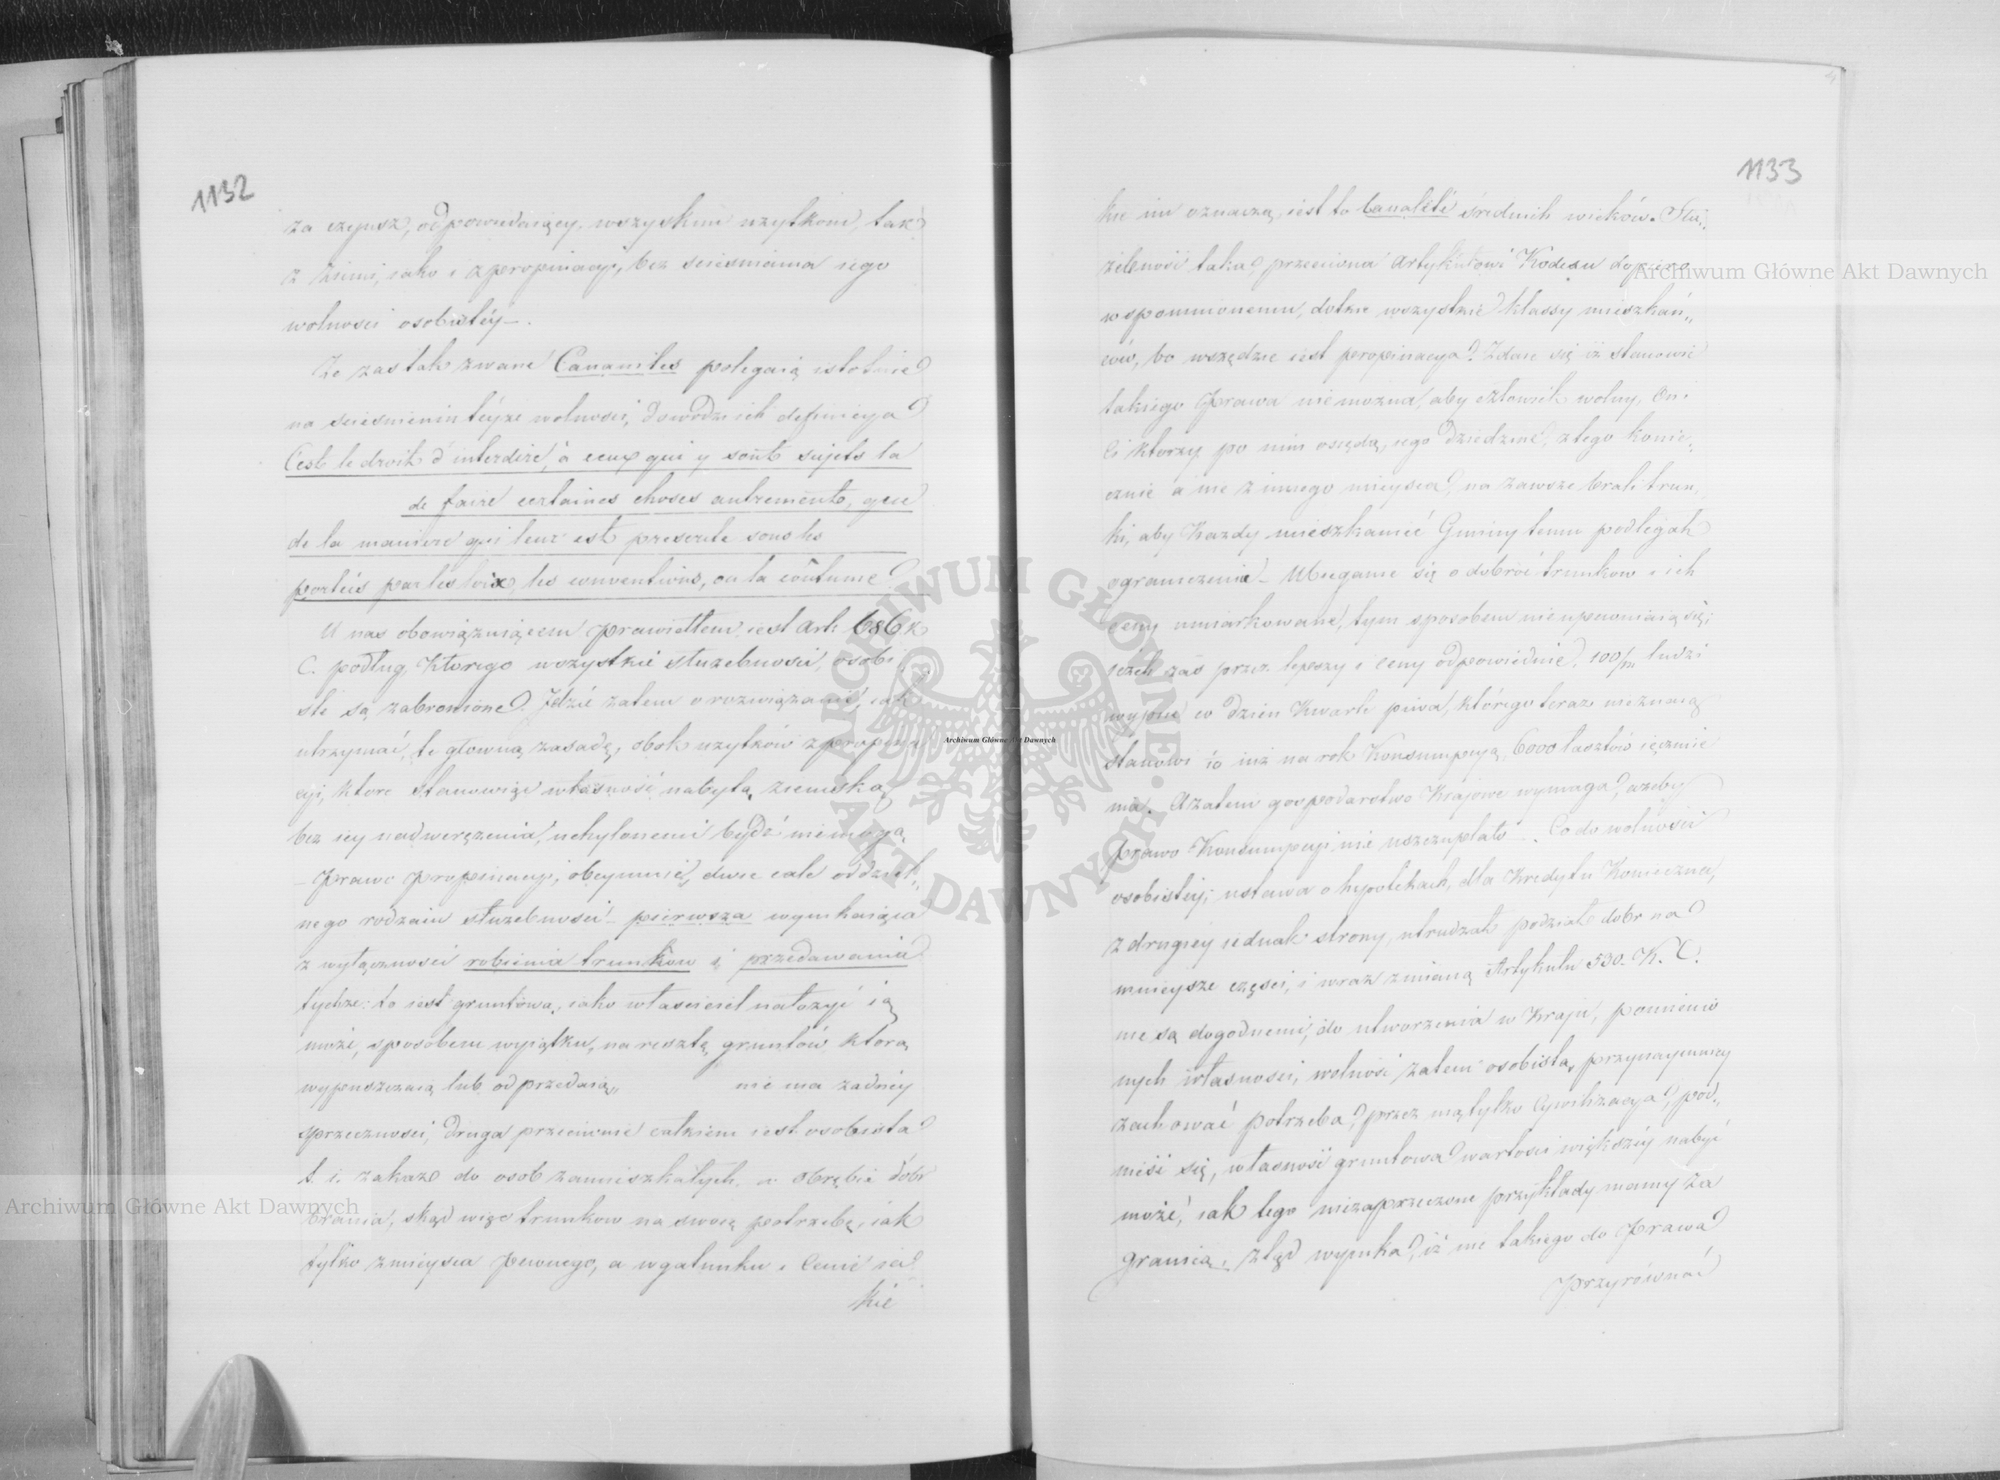 1132
za czynsz, odpowiedaiący, wszyskim uzytkom, tak
z ziemi, iako i z propinacyi, bez sciesnienia iego
wolnosci osobistéy.
Ze zas tak zwane Cananites polegaią istotnie
na sciesnieniu téyze wolnosci, dowodzi ich definicya
C'est le droit d'interdire, à ceux qui y sont sujets la
de faire certaines choses autrement, que
de la maniere qui leur est prescrite sous les
portéis par les loix, les conventions, ou la coûtume
U nas obowiązuiącem prawidłem iest Art. 686 K
C. podług ktorego wszystkie służebnosci, osobi
ste są zabronione. Jdzie zatem o rozwiązanie, iak
utrzymać, tę głowną zasadę, obok uzytków z propina
cyi, ktore stanowiąc własność nabytą ziemską
bez iey nadweręzenia, uchylonemi bydź niemogą
- Prawo propinacyi, obeymuie, dwie całe oddziel-
nego rodzaiu służebnosci - pierwsza wynikaiąca
z wyłącznosci robienia trunkow i przedawania
tychze: to iest gruntowa, iako własciciel nałozyć ią
może, sposobem wyiątku, na resztę gruntów ktorą
wypuszczaią lub odprzedaią, nie ma zadnéy
sprzecznosci, druga przeciwnie całkiem iest osobista
t. i. zakaz do osob zamieszkałych w obrębie dóbr
brania, skąd więc trunkow na swoią potrzebę, iak
tylko z mieysca pewnego, a w gatunku i Cenie ia
kie
1133
kie im oznaczą, iest to banalité średnich wieków. Słu-
żebność taka, przeciwna Artykułowi Kodexu dopiero
wspomnionemu, dotknie wszystkie klassy mieszkań-
ców, bo wszędzie iest propinacya. Zdaie się iż stanowić
takiego Prawa nie można, aby człowiek wolny, On i
Ci ktorzy po nim osiędą, iego dziedzine, z tego konie-
cznie a nie z innego mieysca, na zawsze brali trun-
ki, aby Kazdy mieszkaniec Gminy temu podlegał
ograniczeniu - Ubieganie się o dobroć trunkow i ich
ceny umiarkowane, tym sposobem nieupewniaią się;
ieżeli zaś przez lepszy i ceny odpowiednie, 100/m ludzi
wypiie co dzien Kwartę piwa, którego teraz nieznaią
stanowi to iuż na rok Konsumpcyą, 6000 łasztów ięczmie
nia. A zatem gospodarstwo Krajowe wymaga, azeby
prawo Konsumpcyi nie uszczuplało - . Co do wolności
osobistéy; ustawa o hypotekach, dla Kredytu Konieczna,
z drugiey iednak strony, utrudzać podział dobr na
mnieysze części, i wraz z zmianą Artykułu 530. K. C.
nie są dogodnemi, do utworzenia w Kraju, pomienio
nych własnosci, wolność zatem osobistą, przynaymniey
zachować potrzeba, przez nią tylko Cywilizacya, pod-
nieść się, własność gruntowa wartosci większéy nabyć
może, iak tego niezaprzeczone przykłady mamy za
granicą. Ztąd wynika, iż nie takiego do Prawa
przyrównać
Archiwum Główne Akt Dawnych
Archiwum Główne Akt Dawnych
Archiwum Główne Akt Dawnych
ARCHIWUM GŁÓWNE AKT DAWNYCH